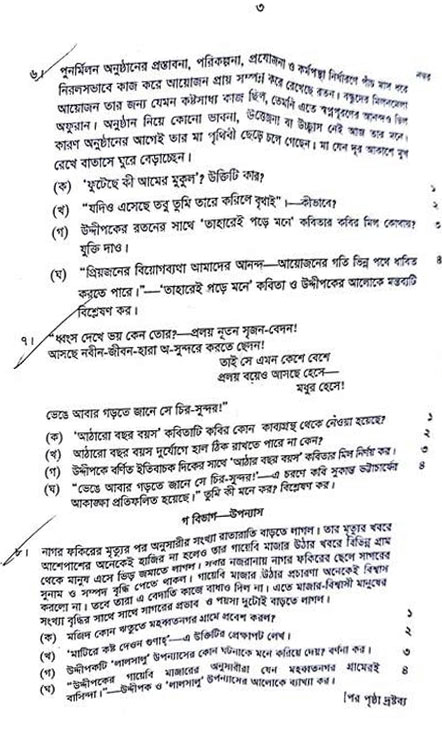 ৩
নম্বর
৬। পুনর্মিলন অনুষ্ঠানের প্রস্তাবনা, পরিকল্পনা, প্রযোজনা ও কর্মপন্থা নির্ধারণে পাঁচ মাস ধরে
নিরলসভাবে কাজ করে আয়োজন প্রায় সম্পন্ন করে রেখেছে রতন। বন্ধুদের মিলনমেলা
আয়োজন তার জন্য যেমন কষ্টসাধ্য কাজ ছিল, তেমনি এতে স্বপ্নপূরণের আনন্দও ছিল
অফুরান। অনুষ্ঠান নিয়ে কোনো ভাবনা, উত্তেজনা বা উচ্ছ্বাস নেই আজ তার মনে।
কারণ অনুষ্ঠানের আগেই তার মা পৃথিবী ছেড়ে চলে গেছেন। মা যেন দূর আকাশে মুখ
রেখে বাতাসে ঘুরে বেড়াচ্ছেন।
(ক) ‘ফুটেছে কী আমের মুকুল’? উক্তিটি কার? ১
(খ) “যদিও এসেছে তবু তুমি তারে করিলে বৃথাই”।—কীভাবে? ২
(গ) উদ্দীপকের রতনের সাথে ‘তাহারেই পড়ে মনে’ কবিতার কবির মিল কোথায়? ৩
যুক্তি দাও।
(ঘ) “প্রিয়জনের বিয়োগব্যথা আমাদের আনন্দ—আয়োজনের গতি ভিন্ন পথে ধাবিত ৪
করতে পারে।”—‘তাহারেই পড়ে মনে’ কবিতা ও উদ্দীপকের আলোকে মন্তব্যটি
বিশ্লেষণ কর।
৭। “ধ্বংস দেখে ভয় কেন তোর?—প্রলয় নূতন সৃজন-বেদন!
আসছে নবীন-জীবন-হারা অ-সুন্দরে করতে ছেদন!
তাই সে এমন কেশে বেশে
প্রলয় বয়েও আসছে হেসে—
মধুর হেসে!
ভেঙে আবার গড়তে জানে সে চির-সুন্দর!”
(ক) ‘আঠারো বছর বয়স’ কবিতাটি কবির কোন কাব্যগ্রন্থ থেকে নেওয়া হয়েছে? ১
(খ) আঠারো বছর বয়স দুর্যোগে হাল ঠিক রাখতে পারে না কেন? ২
(গ) উদ্দীপকে বর্ণিত ইতিবাচক দিকের সাথে ‘আঠার বছর বয়স’ কবিতার মিল নির্ণয় কর। ৩
(ঘ) “ভেঙে আবার গড়তে জানে সে চির-সুন্দর!’—এ চরণে কবি সুকান্ত ভট্টাচার্যের ৪
আকাঙ্ক্ষা প্রতিফলিত হয়েছে।” তুমি কী মনে কর? বিশ্লেষণ কর।
গ বিভাগ—উপন্যাস
৮। নাগর ফকিরের মৃত্যুর পর অনুসারীর সংখ্যা রাতারাতি বাড়তে লাগল। তার মৃত্যুর খবরে
আশেপাশের অনেকেই হাজির না হলেও তার গায়েবি মাজার উঠার খবরে বিভিন্ন গ্রাম
থেকে মানুষ এসে ভিড় জমাতে লাগল। সবার নজরানায় নাগর ফকিরের ছেলে সাগরের
সুনাম ও সম্পদ বৃদ্ধি পেতে থাকল। গায়েবি মাজার উঠার প্রচারণা অনেকেই বিশ্বাস
করলো না। তবে তারা এ বেদাতি কাজে বাধাও দিল না। এতে মাজার-বিশ্বাসী মানুষের
সংখ্যা বৃদ্ধির সাথে সাথে সাগরের প্রভাব ও পয়সা দুটোই বাড়তে লাগল।
(ক) মজিদ কোন ঋতুতে মহব্বতনগর গ্রামে প্রবেশ করল? ১
(খ) ‘মাটিরে কষ্ট দেওন গুণাহ্’—এ উক্তিটির প্রেক্ষাপট লেখ। ২
(গ) উদ্দীপকটি ‘লালসালু’ উপন্যাসের কোন ঘটনাকে মনে করিয়ে দেয়? বর্ণনা কর। ৩
(ঘ) “উদ্দীপকের গায়েবি মাজারের অনুসারীরা যেন মহব্বতনগর গ্রামেরই ৪
বাসিন্দা।”—উদ্দীপক ও ‘লালসালু’ উপন্যাসের আলোকে ব্যাখ্যা কর।
[পর পৃষ্ঠা দ্রষ্টব্য